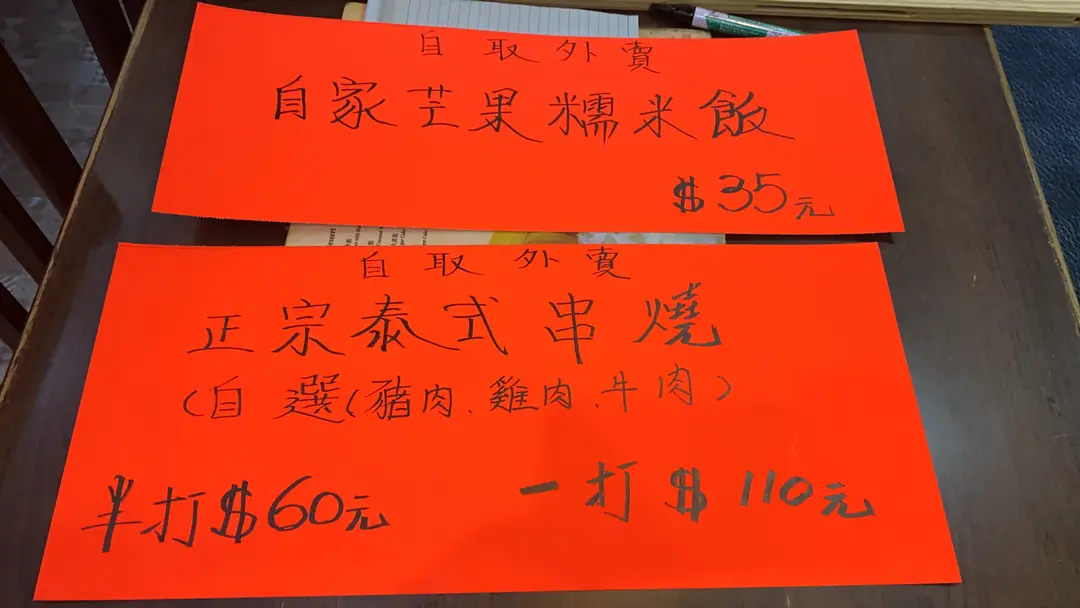 自取外賣
自家芒果糯米飯
$35元
自取外賣
正宗泰式串燒
(自選(豬肉、雞肉、牛肉)
半打$60元 一打$110元